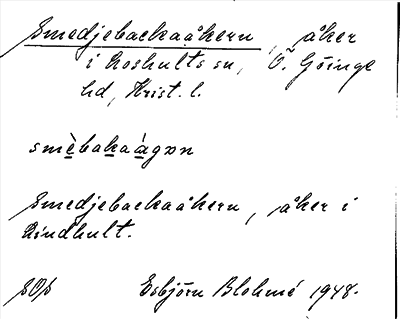 Smedjebackaåkern, åker
i Loshults sn, Ö. Göinge
hd, Krist. l.
smèbakaágən
Smedjebackaåkern, åker i
Lindhult.
SOp Esbjörn Blohmé 1948.